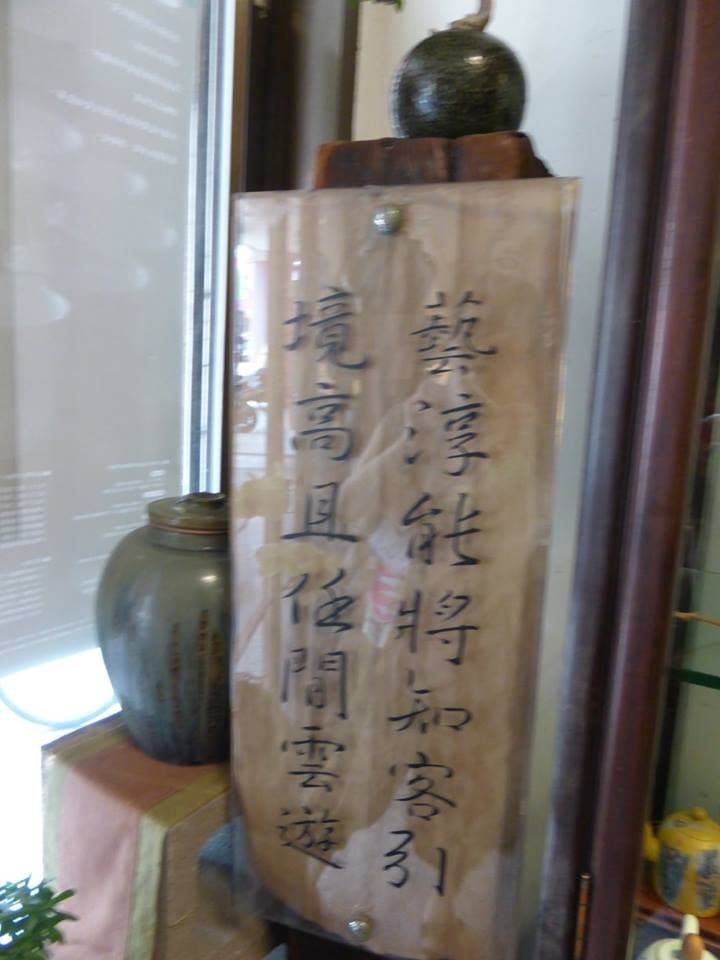 藝淳能將知客引
境高且任閒雲遊